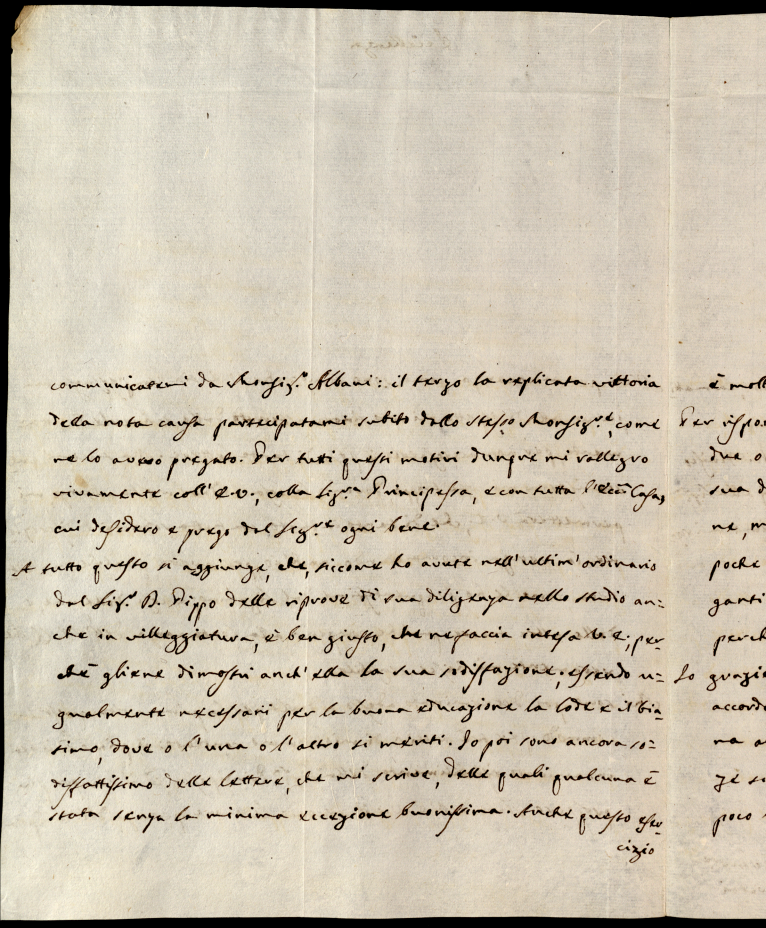 communicatemi da Monsig.r Albani: il terzo la replicata vittoria
della nota causa partecipatami subito dallo stesso Monsig.re, come
ne lo avevo pregato. Per tutti questi motivi dunque mi rallegro
vivamente coll'E.V., colla Sig.ra Principessa, e con tutta l'Ecc.ma Casa,
cui desidero e prego dal Sig.re ogni bene.
A tutto questo si aggiunge, che, siccome ho avute nell'ultim'ordinario
dal Sig.r D. Pippo delle riprove di sua diligenza nello studio an=
che in villeggiatura, è ben giusto, che ne faccia intesa V.E., per=
chè gliene dimostri anch'ella la sua sodisfazione, essendo u=
gualmente necessari per la buona educazione la lode e il bia=
simo, dove o l'una o l'altro si meriti. Io poi sono ancora so=
disfattissimo delle lettere, che mi scrive, delle quali qualcuna è
stata senza la minima eccezione buonissima. Anche questo eser=
cizio
è molt
Per rispo
due o
sua d
ne, m
poche
ganti
perch
Io grazie
accord
na a
ze s
poco